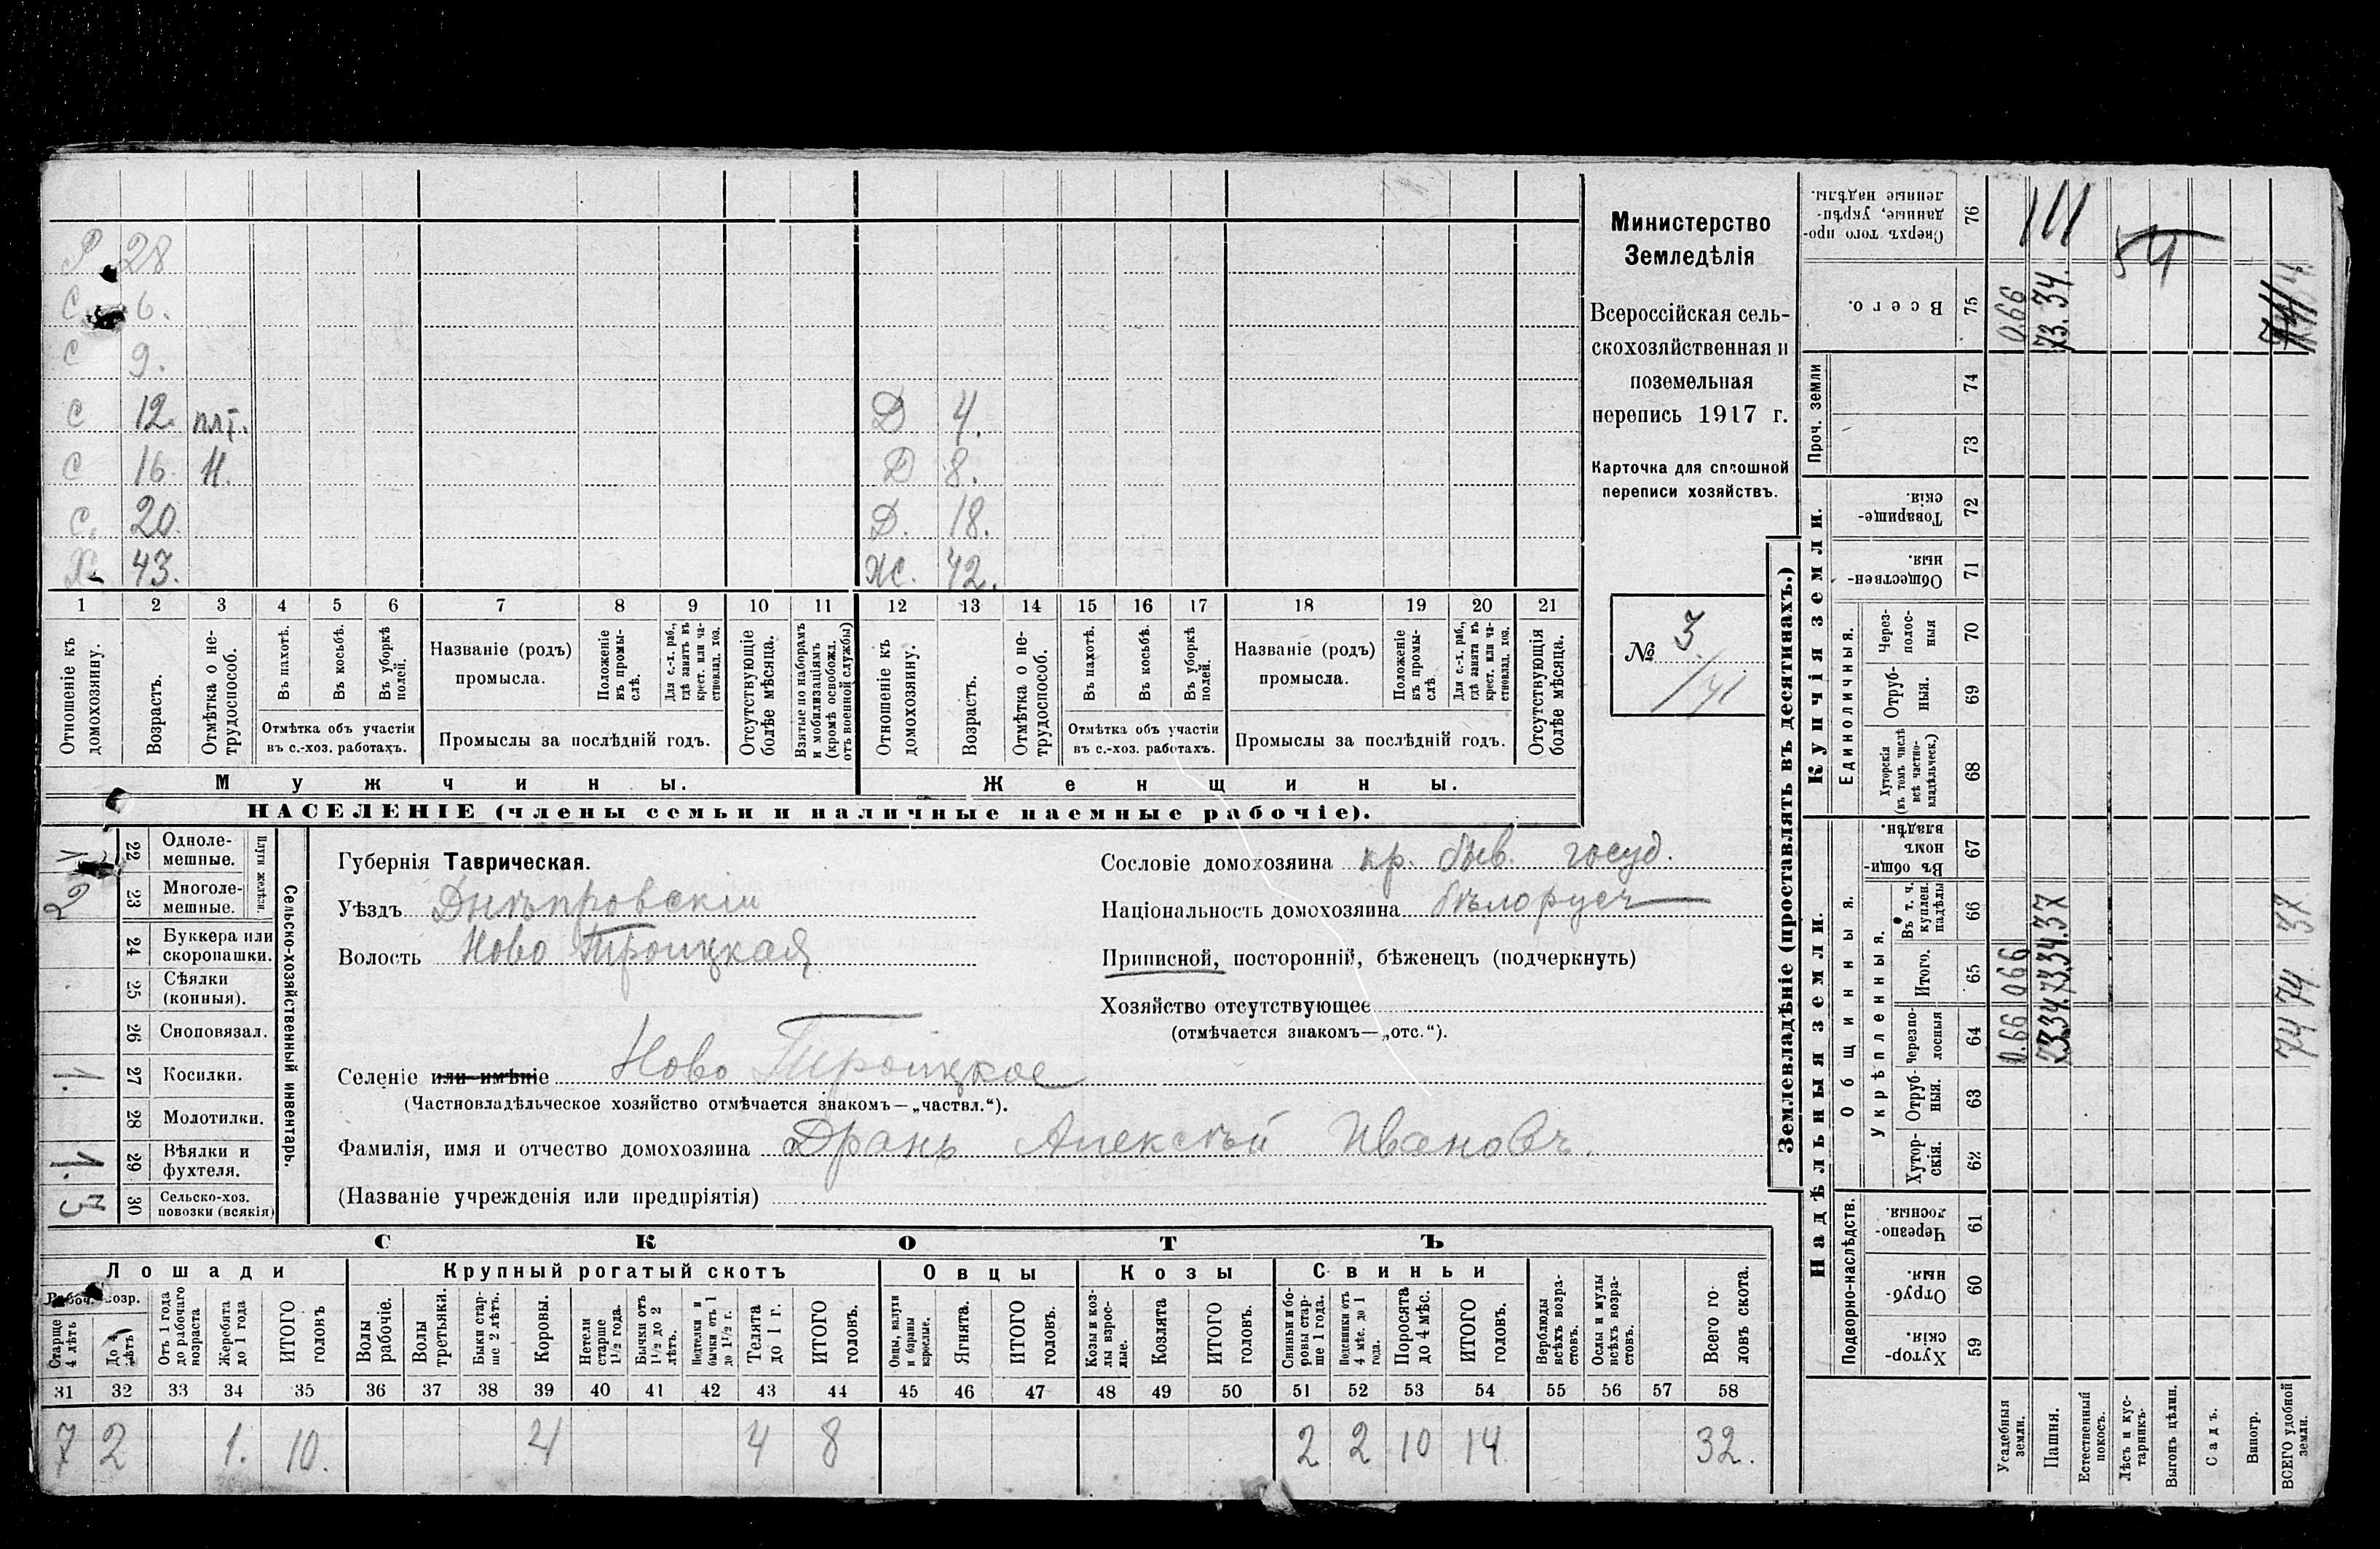 Р 28
С 6.
С 9.
С 12. плт. Д 4.
С 16. Н. Д 8.
С. 20. Д. 18.
Х. 43. Ж. 42.
1 2 3 4 5 6 7 8 9 10 11 12 13 14 15 16 17 18 19 20 21
Отношеніе къ домохозяину.
Возрастъ.
Отмѣтка о нетрудоспособ.
Въ пахотѣ.
Въ косьбѣ.
Въ уборкѣ полей.
Отмѣтка объ участіи
въ с.-хоз. работахъ.
Названіе (родъ)
промысла.
Положеніе въ промыслѣ.
Для с.-х. раб., гдѣ занятъ въ крест. или частновлад. хоз.
Промыслы за послѣдній годъ.
Отсутствующіе болѣе мѣсяца.
Взятые по наборамъ и мобилизаціямъ (кромѣ освобожд. отъ военной службы)
Отношеніе къ домохозяину.
Возрастъ.
Отмѣтка о нетрудоспособ.
Въ пахотѣ.
Въ косьбѣ.
Въ уборкѣ полей.
Отмѣтка объ участіи
въ с.-хоз. работахъ.
Названіе (родъ)
промысла.
Положеніе въ промыслѣ.
Для с.-х. раб., гдѣ занята въ крест. или частновлад. хоз.
Промыслы за послѣдній годъ.
Отсутствующія болѣе мѣсяца.
Мужчины. Женщины.
НАСЕЛЕНІЕ (члены семьи и наличные наемные рабочіе).
Министерство
Земледѣлія
Всероссійская сель-
скохозяйственная и
поземельная
перепись 1917 г.
Карточка для сплошной
переписи хозяйствъ.
№ 3.
Плуги желѣзн.
22 Одноле-
мешные.
2 23 Многоле-
мешные.
24 Буккера или
скоропашки.
25 Сѣялки
(конныя).
26 Сноповязал.
1. 27 Косилки.
28 Молотилки.
1. 29 Вѣялки и
фухтеля.
3 30 Сельско-хоз.
повозки (всякія)
Сельско-хозяйственный инвентарь.
Губернія Таврическая.
Уѣздъ Днѣпровскій
Волость Ново Троицкая
Селеніе или имѣніе Ново Троицкое
(Частновладѣльческое хозяйство отмѣчается знакомъ—„частвл.“).
Фамилія, имя и отчество домохозяина Дрань Алексѣй Ивановъ.
(Названіе учрежденія или предпріятія)
Сословіе домохозяина кр. быв. госуд.
Національность домохозяина бѣлорусъ
Приписной, посторонній, бѣженецъ (подчеркнуть)
Хозяйство отсутствующее
(отмѣчается знакомъ—„отс.“).
СКОТЪ
Лошади Крупный рогатый скотъ Овцы Козы Свиньи
Рабоч. возр.
Старше 4 лѣтъ
До 4 лѣтъ
Отъ 1 года до рабочаго возраста
Жеребята до 1 года
ИТОГО головъ
Волы рабочіе.
Волы третьяки.
Быки старше 2 лѣтъ.
Коровы.
Нетели старше 1½ года.
Бычки отъ 1½ до 2 лѣтъ.
Подтелки и бычки отъ 1 до 1½ г.
Телята до 1 г.
ИТОГО головъ.
Овцы, валухи и бараны взрослые.
Ягнята.
ИТОГО головъ.
Козы и козлы взрослые.
Козлята
ИТОГО головъ.
Свиньи и боровы старше 1 года.
Подсвинки отъ 4 мѣс. до 1 года.
Поросята до 4 мѣс.
ИТОГО головъ.
Верблюды всѣхъ возрастовъ.
Ослы и мулы всѣхъ возрастовъ.
Всего головъ скота.
31 32 33 34 35 36 37 38 39 40 41 42 43 44 45 46 47 48 49 50 51 52 53 54 55 56 57 58
7 2 1. 10. 4 4 8 2 2 10 14 32.
Землевладѣніе (проставлять въ десятинахъ.)
Надѣльныя земли. Купчія земли. Проч. земли
Подворно-наслѣдств.
Общинныя.
Укрѣпленныя.
Единоличныя.
Хуторскія. 59
Отрубныя. 60
Черезполосныя. 61
Хуторскія. 62
Отрубныя. 63
Черезполосныя 64
Итого. 65
Въ т. ч. куплен. надѣлы 66
Въ общинномъ владѣн. 67
Хуторскія (въ томъ числѣ всѣ частновладѣльческ.) 68
Отрубныя. 69
Черезполосныя 70
Общественныя. 71
Товарищескія. 72
73
74
Всего. 75
Сверхъ того проданные, укрѣпленные надѣлы. 76
Усадебныя земли.
0.66 066 0.66
Пашня.
7334. 7334. 37 73.34.
Естественный покосъ.
Лѣсъ и кустарникъ.
54
Выгонъ цѣлин.
Садъ.
Виногр.
ВСЕГО удобной земли.
74 74 37